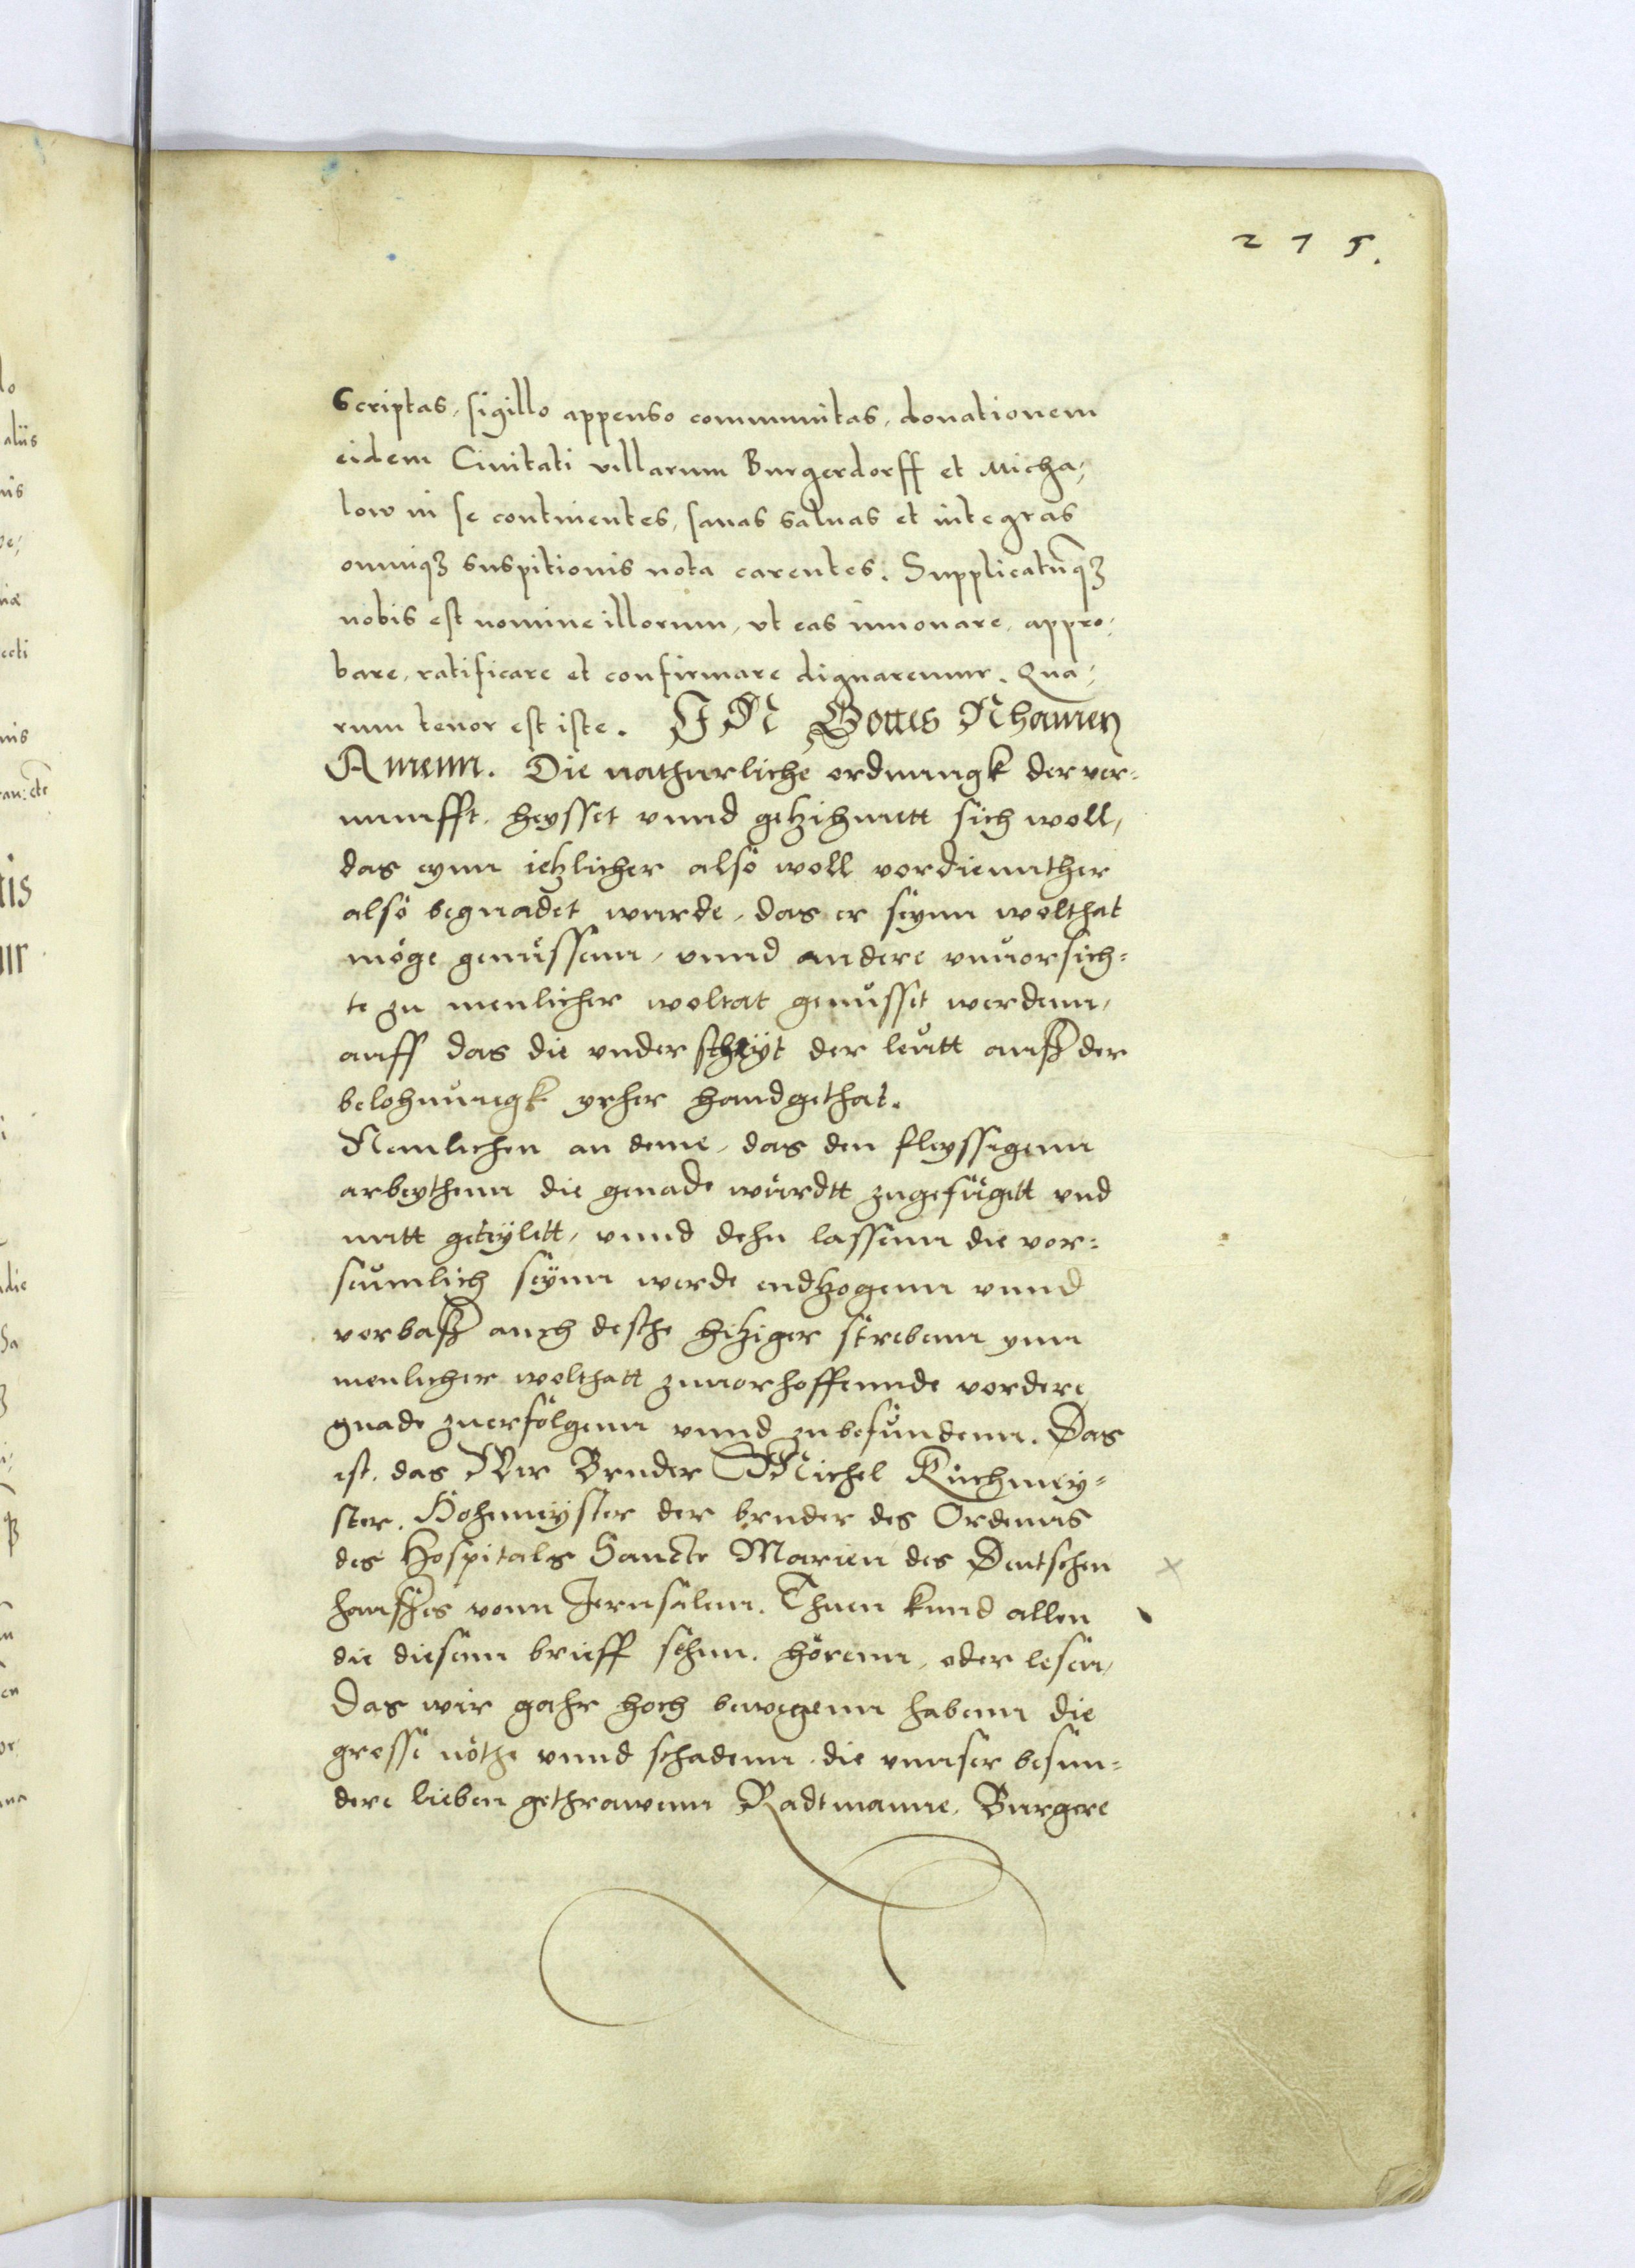 2 7 5.
scriptas, sigillo appenso communitas, donationem
eidem Ciuitati villarum Burgerdorff et Micha⸗
low in se continentes, sanas saluas et integras
omniqꝫ suspitionis nota carentes. Supplicatūqꝫ
nobis est nomine illorum, vt eas innouare, appro⸗
bare, ratificare et confirmare dignaremur. Qua⸗
rum tenor est iste. IN Gottes Nhamen
Amenn. Die nathurliche ordnungk der ver⸗
nunfft heysset vnnd getzihmett sich woll,
das eynn ietzlicher also woll vordiennther
also begnadet wurde, das er seynn wolthat
möge genüssenn, vnnd andere vnuorsich⸗
te zu menlicher woltat genusset werdenn,
auff das die vnderscheyt der leutt auß der
belohnungk yrher handgethat.
Nemlichen an deme, das den fleyssigenn
arbeythenn die genade würdtt zugefügett vnd
mitt geteylett, vnnd dehn lassenn die vor⸗
seumlich seynn werde endtzogenn vnnd
vorbaß auch desche hitziger strebenn ynn
menlicher wolthatt zuuorhoffennde vordere
gnade zuerfolgenn vnnd zubefundenn. Das
ist, das Wir Bruder Michel Kuchmey⸗
ster, Hohmeyster der bruder des Ordenns
des Hospitals Sancte Marien des Deutschen
haußes vonn Jerusalem. Thuen kund allen
die diesenn brieff sehnn, hörenn, oder lesen,
Das wir gahr hoch bewegenn habenn die
grosse nöthe vnnd schadenn, die vnnser besun⸗
dere lieben gethrawenn Radtmanne, Burgere